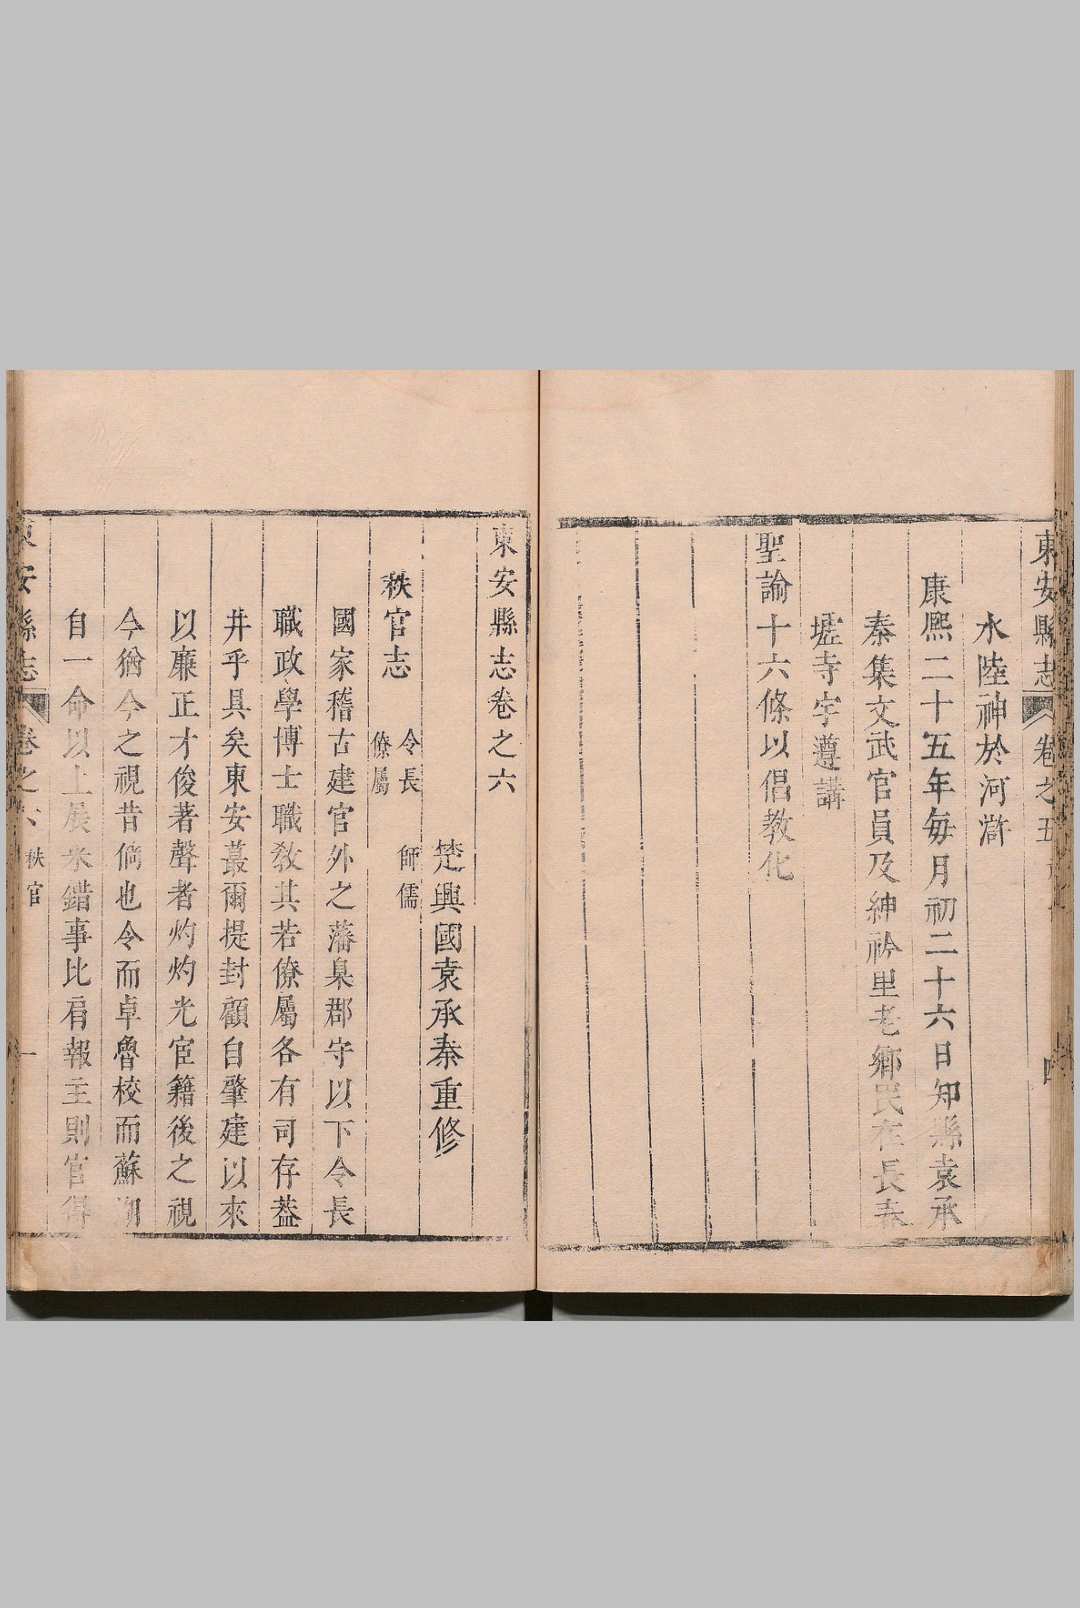 東安縣志 卷之五
水陸神於河滸
康熙二十五年每月初二十六日知縣袁承
秦集文武官員及紳衿里老鄉民在長春
壢寺宇遵講
聖諭十六條以倡教化
東安縣志卷之六
楚興國袁承秦重修
秩官志 令長 師儒
僚屬
國家稽古建官外之藩臬郡守以下令長
職政學博士職教其若僚屬各有司存葢
井乎具矣東安蕞爾提封顧自肇建以來
以廉正才俊著聲者灼灼光宦籍後之視
今猶今之視昔倘也令而卓魯校而蘇湖
自一命以上展采錯事比肩報主則官得
東安縣志 卷之六 秩官 一